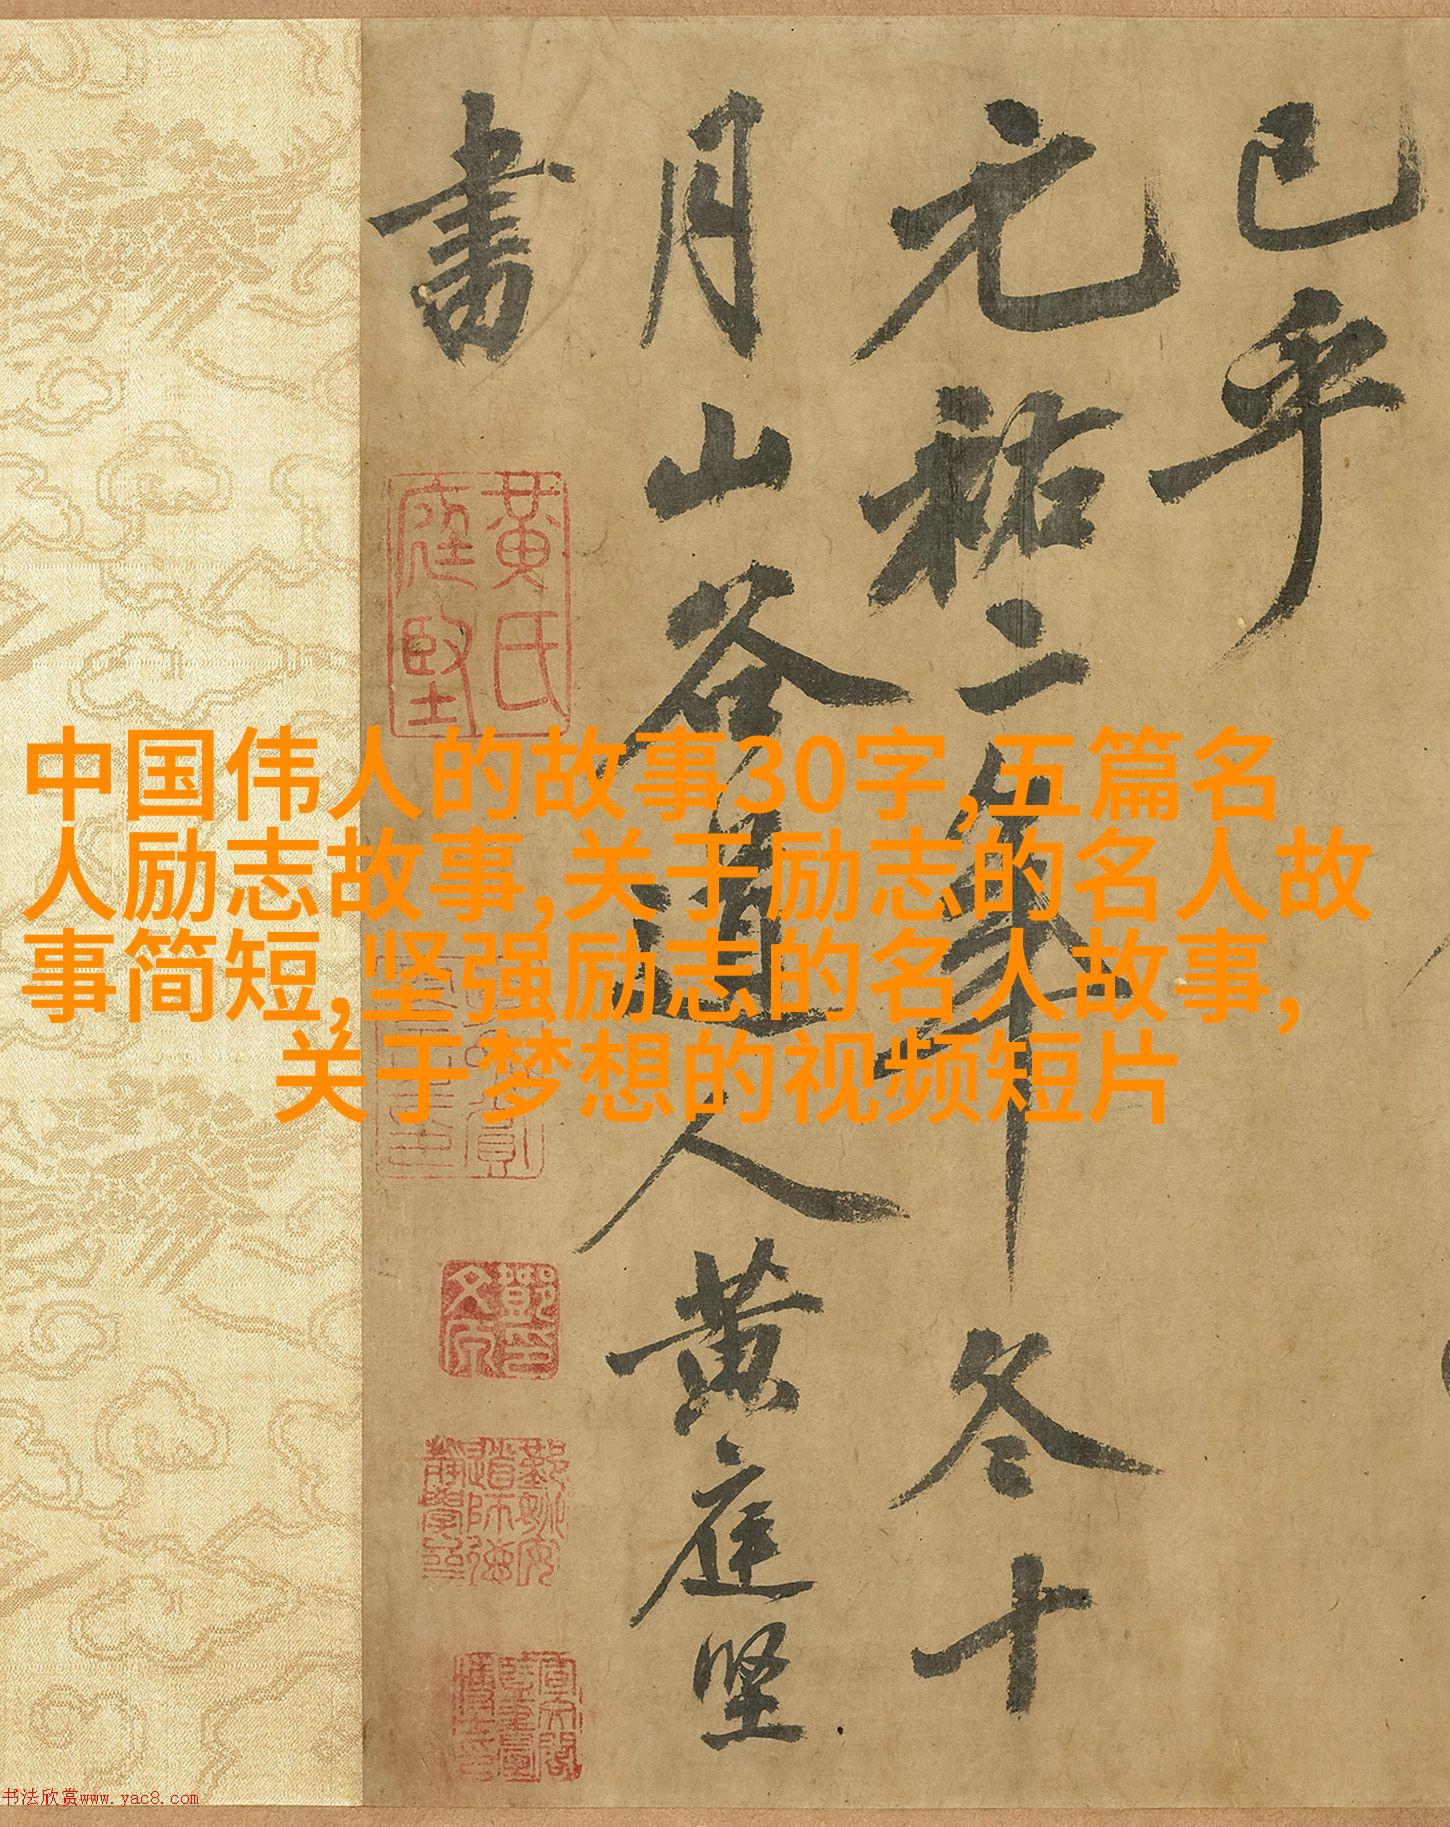 已乎
元祐二年冬十
月山谷道人黄庭坚
書
黃氏庭堅
中国伟人的故事30字,五篇名
人励志故事,关于励志的名人故
事简短,坚强励志的名人故事,
关于梦想的视频短片
书法欣赏www.yac8.com